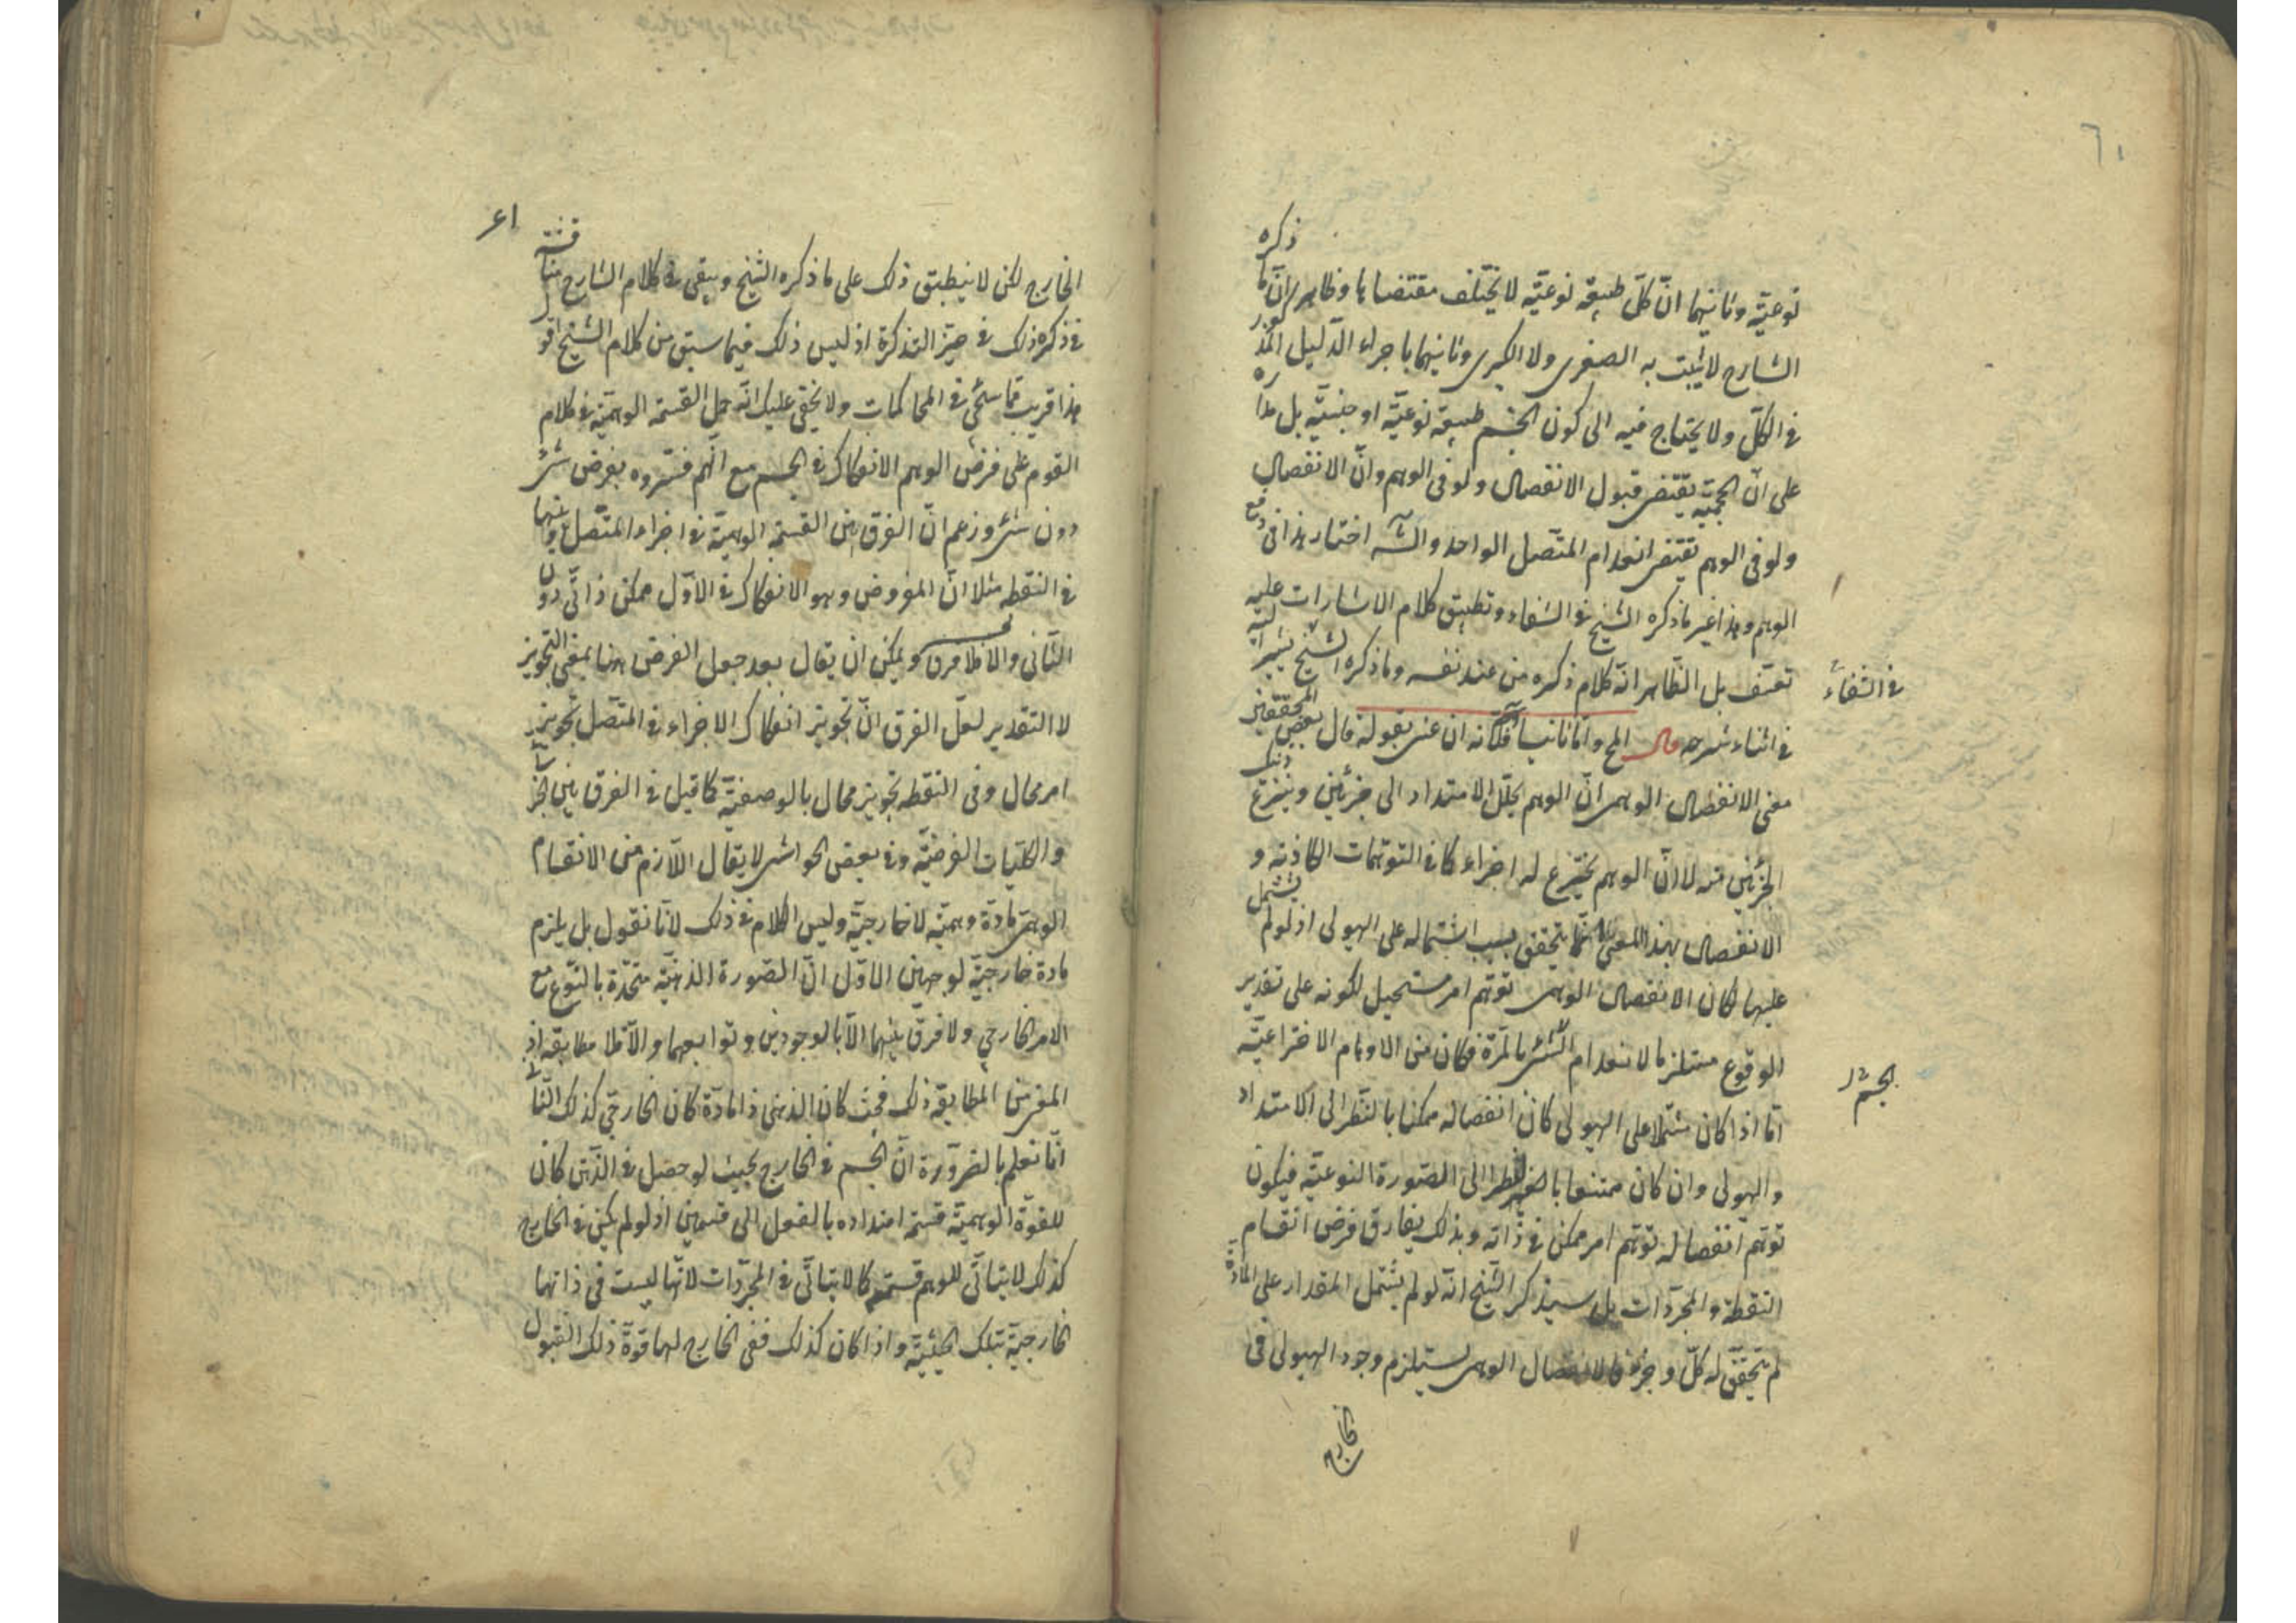 ٦١
نوعيّة وثانيهما انّ كلّ طبيعة نوعيّة لا يختلف مقتضاها وظاهر انّ ما ذكره
الشارح لا يثبت به الصغرى ولا الكبرى وثانيهما باجراء الدّليل المذكور
فى الكلّ ولا يحتاج فيه الى كون الجسم طبيعة نوعيّة او جنسيّة بل مداره
على انّ الجسميّة يقتضى قبول الانفصال ولو فى الوهم وانّ الانفصال
ولو فى الوهم يقتضى انعدام المتّصل الواحد والشه اختار هذا فى دفع
الوهم وهذا غير ما ذكره الشيخ فى الشفاء وتطبيق كلام الاشارات عليه
تعسّف بل الظّاهر انّه كلام ذكره من عند نفسه وما ذكره الشيخ يشير اليه
فى الشفاء
فى اثناء شرحه قال المح وامّا ثانيا فلانّه ان عنى بقوله قال بعض المحققين
معنى الانفصال الوهمى انّ الوهم يحلّل الامتداد الى جزئين وينتزع ذينك
الجزئين منه لا انّ الوهم يخترع له اجزاء كما فى التوهّمات الكاذبة و
الانفصال بهذا المعنى انّما يتحقق بسبب اشتماله على الهيولى اذ لو لم يشتمل
عليها لكان الانفصال الوهمى توهّم امر مستحيل لكونه على تقدير
الوقوع مستلزما لانعدام الشئ بالمرّة فكان من الاوهام الاختراعيّة
امّا اذا كان مشتملا على الهيولى كان انفصاله ممكنا بالنّظر الى الامتداد
الجسم
والهيولى وان كان ممتنعا بالنظر الى الصّورة النوعيّة فيكون
توهّم انفصاله توهّم امر ممكن فى ذاته وبذلك يفارق فرض انقسام
النقطة والمجرّدات بل سيذكر الشّيخ انّه لو لم يشتمل المقدار على المادّة
لم يتحقّق له كلّ وجزء فالانفصال الوهمى يستلزم وجود الهيولى فى
الخارج
الخارج لكن لا ينطبق ذلك على ما ذكره الشّيخ ويبقى فى كلام الشارح
فى ذكره ذلك فى حيّز التذكرة اذ ليس ذلك فيما سبق من كلام الشيخ اقول
هذا قريب ممّا سنح فى المحاكمات ولا يخفى عليك انّه حمل القسمة الوهميّة فى كلام
القوم على فرض الوهم الانفكاك فى الجسم مع انّهم فسّروه بفرض شئ
دون شئ وزعم انّ الفرق بين القسمة الوهميّة فى اجزاء المتّصل وبينها
فى النقطة مثلا انّ المفروض وهو الانفكاك فى الاوّل ممكن ذاتّى دون
الثانى والّا فلا فرق ويمكن ان يقال بعد جعل الفرض هنا بمعنى التجويز
لا التقدير لعلّ الفرق انّ تجويز انفكاك الاجزاء فى المتّصل تجويز
امر محال وفى النقطة تجويز محال بالوصفيّة كما قيل فى الفرق بين الجزئيات
والكلّيات الفرضيّة وفى بعض الحواشى لا يقال اللّازم من الانقسام
الوهمى مادّة وهميّة لا خارجيّة وليس الكلام فى ذلك لانّا نقول بل يلزم
مادة خارجيّة لوجهين الاوّل انّ الصّورة الذهنيّة متّحدة بالنّوع مع
الامر الخارجى ولا فرق بينهما الّا بالوجودين وتوابعهما والّا فلا مطابقة اذ
المفرض المطابقة ذلك فحيث كان الذهنى ذا مادّة كان الخارجى كذلك الثانى
انّا نعلم بالضّرورة انّ الجسم فى الخارج بحيث لو حصل فى الذّهن كان
للقوّة الوهميّة قسمة امتداده بالفعل الى قسمين اذ لو لم يكن فى الخارج
كذلك لا يتأتّى للوهم قسمته كما لا يتأتّى فى المجرّدات لانّها ليست فى ذاتها
خارجيّة بتلك الحيثيّة واذا كان كذلك ففى الخارج لها قوّة ذلك القبول